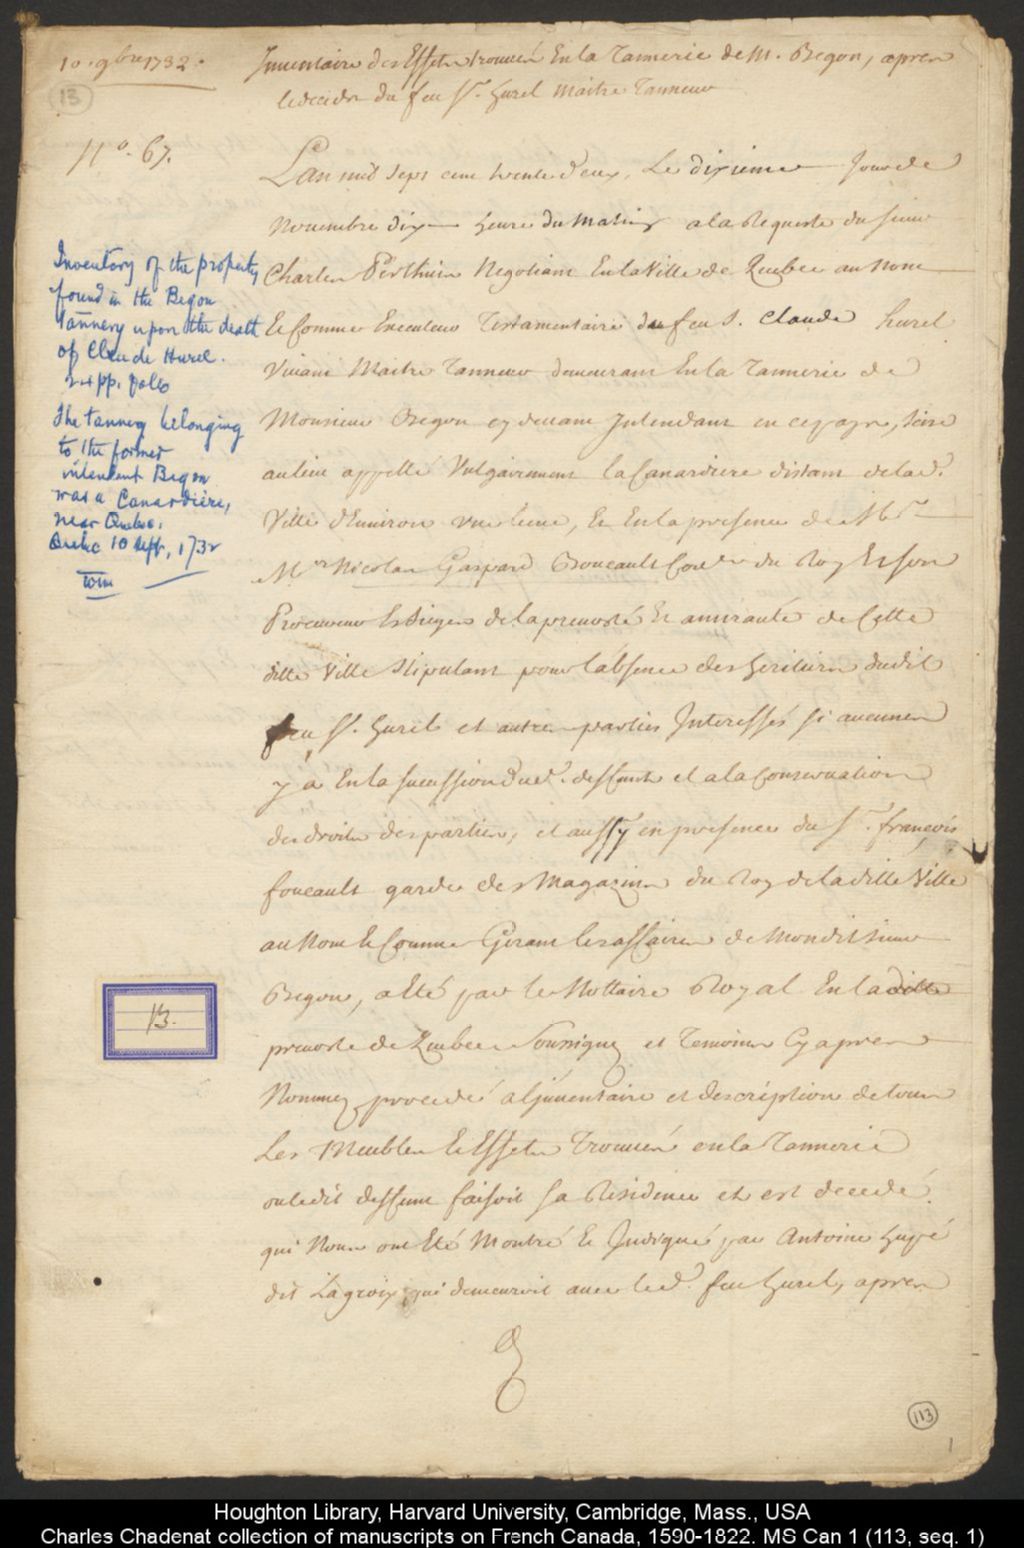 10. 9bre 1732.
Inventaire des Effets trouvés En la Tannerie de M. Begon, apres
le deceds du feu Sr. hurel Maitre Tanneur
13
No. 67.
L'an mil Sept cent trente deux, Le dixieme Jour de
Novembre dix heure du Matin a la Requeste du sieur
Charles Perthuis Negotiant En la Ville de Quebec au Nom
Et Comme Executeur Testamentaire du feu S. Claude hurel
Vivant Maitre Tanneur demeurant En la Tannerie de
Monsieur Begon cy devant Intendant en ce pays, scise
au lieu appellé Vulgairement la Canardiere distant de lad.
Ville d'Environ une lieue, Et En la presence de
Mr Nicolas Gaspard Boucault Coner du Roy Et son
Procureur Es Sieges de la prevosté Et amirauté de Cette
ditte Ville Stipulant pour l'absence des heritiers dudit
feu Sr. hurel et autre parties Interessés si aucunes
y a En la sucession dud. deffunt et a la Conservation
des droits des parties, et aussy en presence du Sr. françois
foucault garde des Magazins du Roy de la ditte Ville
au Nom Et Comme Gerant les affaires de Mondit sieur
Begon, a Eté par le Nottaire Royal En la ditte
prevosté de Quebec Soussigné et Temoins Cy apres
Nommez procedé a l'jnventaire et description de tous
Les Meubles Et Effets Trouvés en la Tannerie
ou ledit deffunt faisoit sa Residence et est decedé
qui Nous ont Eté Montré Et Indiqué par Antoine hupé
dit Lagroix qui demeuroit avec led. feu hurel, apres
Inventory of the property
found in the Begon
tannery upon the death
of Claude Hurel.
24 pp. folio
The tannery belonging
to the former
intendant Begon
was a Canardière,
near Quebec.
Quebec 10 sept, 1732
13.
113
1
Houghton Library, Harvard University, Cambridge, Mass., USA
Charles Chadenat collection of manuscripts on French Canada, 1590-1822. MS Can 1 (113, seq. 1)